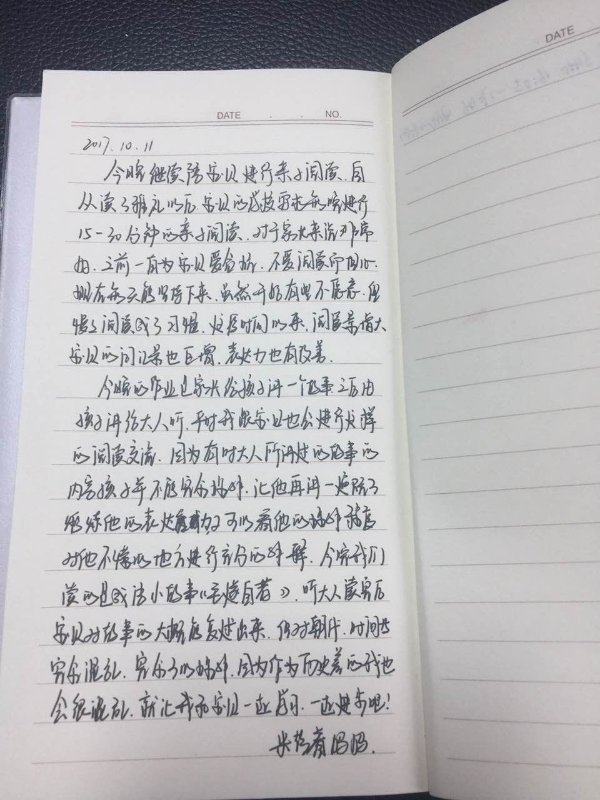 DATE
DATE . . NO.
2017.10.11
今晚继续陪宝贝进行亲子阅读。自
从读了班元以后宝贝的学校要求每晚进行
15-30分钟的亲子阅读。对于家长来说非常
好。之前一直为宝贝爱分析、不爱阅读而担心。
现在每天能坚持下来。虽然开始有些不愿意,但
慢慢阅读成了习惯。这段时间以来,阅读量增大
宝贝的词汇量也巨增,表达力也有改善。
今晚的作业是家长给孩子讲一个故事之后由
孩子讲给大人听,平时我跟宝贝也会进行这样
的阅读交流。因为有时大人所讲述的故事的
内容孩子并不能完全理解。让他再讲一遍除了
锻炼他的表达能力又可以看他的理解程度
对他不懂的地方进行充分的讲解。今天我们
读的是成语小故事《毛遂自荐》。听大人读完后
宝贝对故事的大概能复述出来。但对朝代、时间也
完全混乱。完全可以理解,因为作为历史差的我也
会很混乱。就让我和宝贝一起学习、一起进步吧!
妈妈.